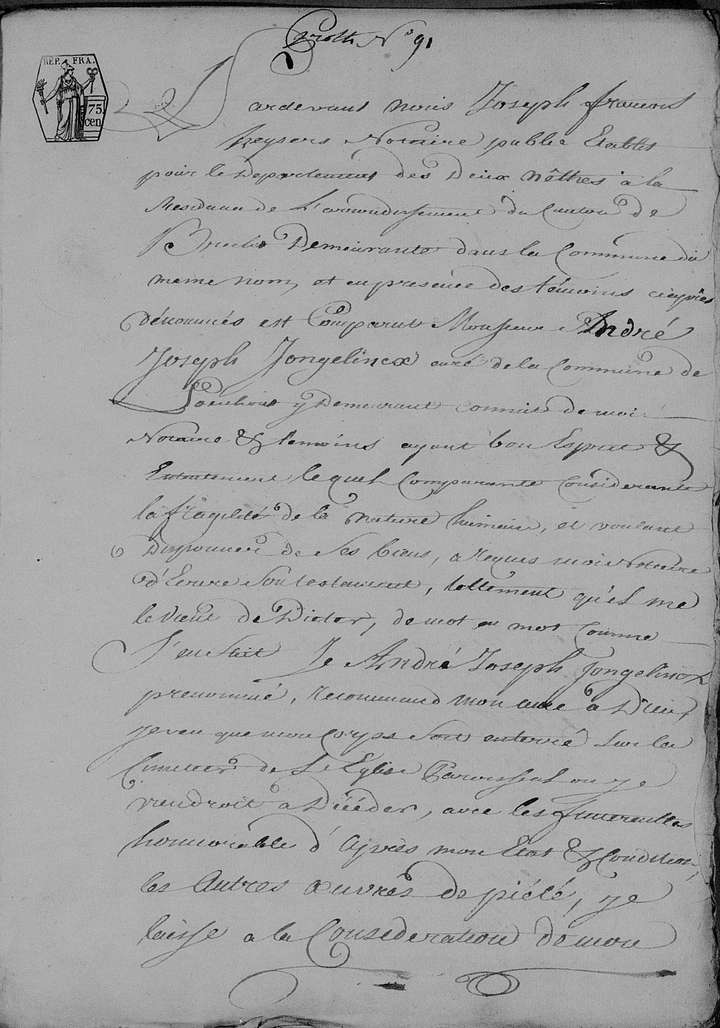 Proth. N° 91
REP. FRA.
75
cen
Pardevant nous Joseph francois
heysers Notaire public Etablis
pour le Departement des Deux Nèthes a la
Residance de L'arrondissement du Canton de
Brecht Demeurante dans la Commune du
meme nom, et en presence des témoins ciaprès
dénommés est Comparut Monsieur André
Joseph Jongelincx curé de la Commune de
Loenhout y Demeurant connus de moi
Notaire & temoins ayant bon Esprit &
Entendement lequel Comparante Considerante
la fragilité de la nature humaine, et voulant
Disposer de ses biens, a Requis moi Notaire
d'Ecrire son testament, tellement qu'il me
le vient de Dicter, de mot en mot comme
S'en suit Je André Joseph Jongelincx
prenommé, Recommand mon ame à Dieu,
je veu que mon Corps soit enterré sur la
Cimetier de L'Eglise Paroissial ou je
viendroit a Décéder, avec les funerailles
honnorable d'Après mon Etat & Condition,
les Autres œuvres de piété, je
laisse a la Consideration de mon